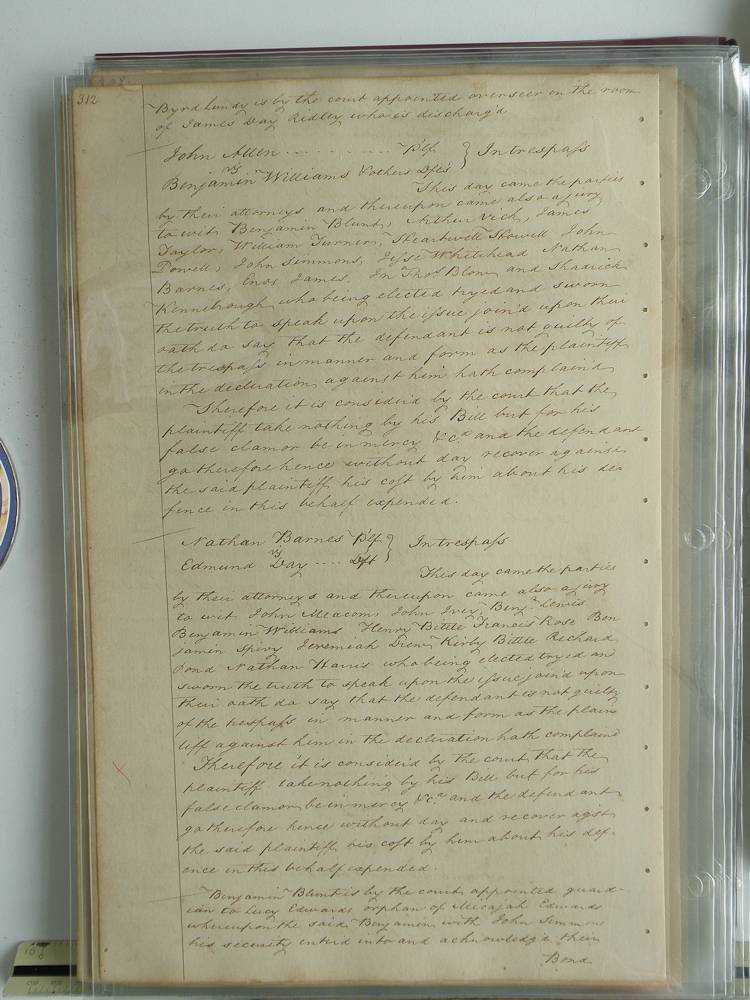 312
Byrd Lundy is by the court appointed overseer in the room
of James Day Ridley who is discharg'd
John Allen - - - - - - - - - - Plf } In trespass
vs
Benjamin Williams & others Dfts
This day came the parties
by their attorneys and thereupon came also a jury
to wit Benjamin Blunt, Arthur Vick, James
Taylor, William Turner, Heartwell Howell John
Powell, John Simmons, Jesse Whitehead Nathan
Barnes, Enos James. Jn Thos Blow and Shadrick
who being elected tryed and sworn
the truth to speak upon the issue join'd upon their
oath do say that the defendant is not guilty of
the trespass in manner and form as the plaintiff
in the declaration against him hath complaind
Therefore it is consider'd by the court that the
plaintiff take nothing by his Bill but for his
false clamor be in mercy &c.a and the defendant
go therefore hence without day recover against
the said plaintiff his cost by him about his de
fence in this behalf expended.
Nathan Barnes Plf } In trespass
vs
Edmund Day .... Dft
This day came the parties
by their attorneys and thereupon came also a jury
to wit John Meacom John Ivey, Benj.a Lewis
Benjamin Williams Henry Bittle Francis Rose Ben
jamin Spivy Jeremiah Drew Kirby Bittle Richard
Pond Nathan Harris who being elected tryed and
sworn the truth to speak upon the issue join'd upon
their oath do say that the defendant is not guilty
of the trespass in manner and form as the plain
tiff against him in the declaration hath complaind
Therefore it is consider'd by the court that the
plaintiff take nothing by his Bill but for his
false clamor be in mercy &c.a and the defendant
go therefore hence without day and recover agst
the said plaintiff his cost by him about his def-
ence in this behalf expended.
Benjamin Blunt is by the court appointed guard-
ian to Lucy Edwards orphan of Micajah Edwards
whereupon the said Benjamin with John Simmons
his security enterd into and acknowledg'd their
Bond